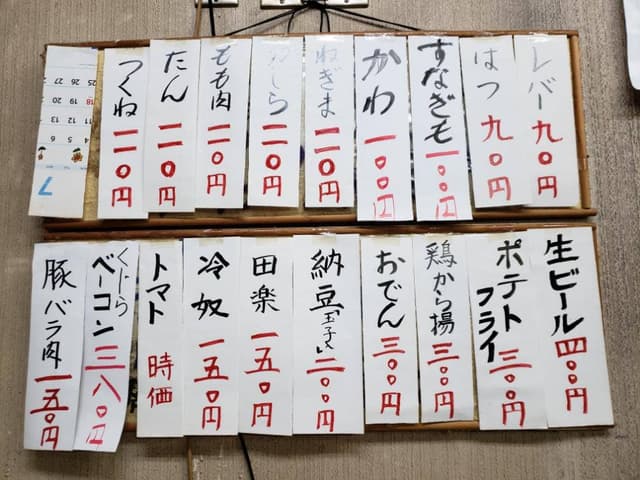 レバー九〇円
はつ九〇円
すなぎも一〇〇円
かわ一〇〇円
ねぎま一一〇円
かしら一一〇円
もも肉一一〇円
たん一一〇円
つくね一一〇円
生ビール四〇〇円
ポテトフライ三〇〇円
鶏から揚三〇〇円
おでん三〇〇円
納豆(玉子入)二〇〇円
田楽一五〇円
冷奴一五〇円
トマト時価
くじらベーコン三八〇円
豚バラ肉一五〇円